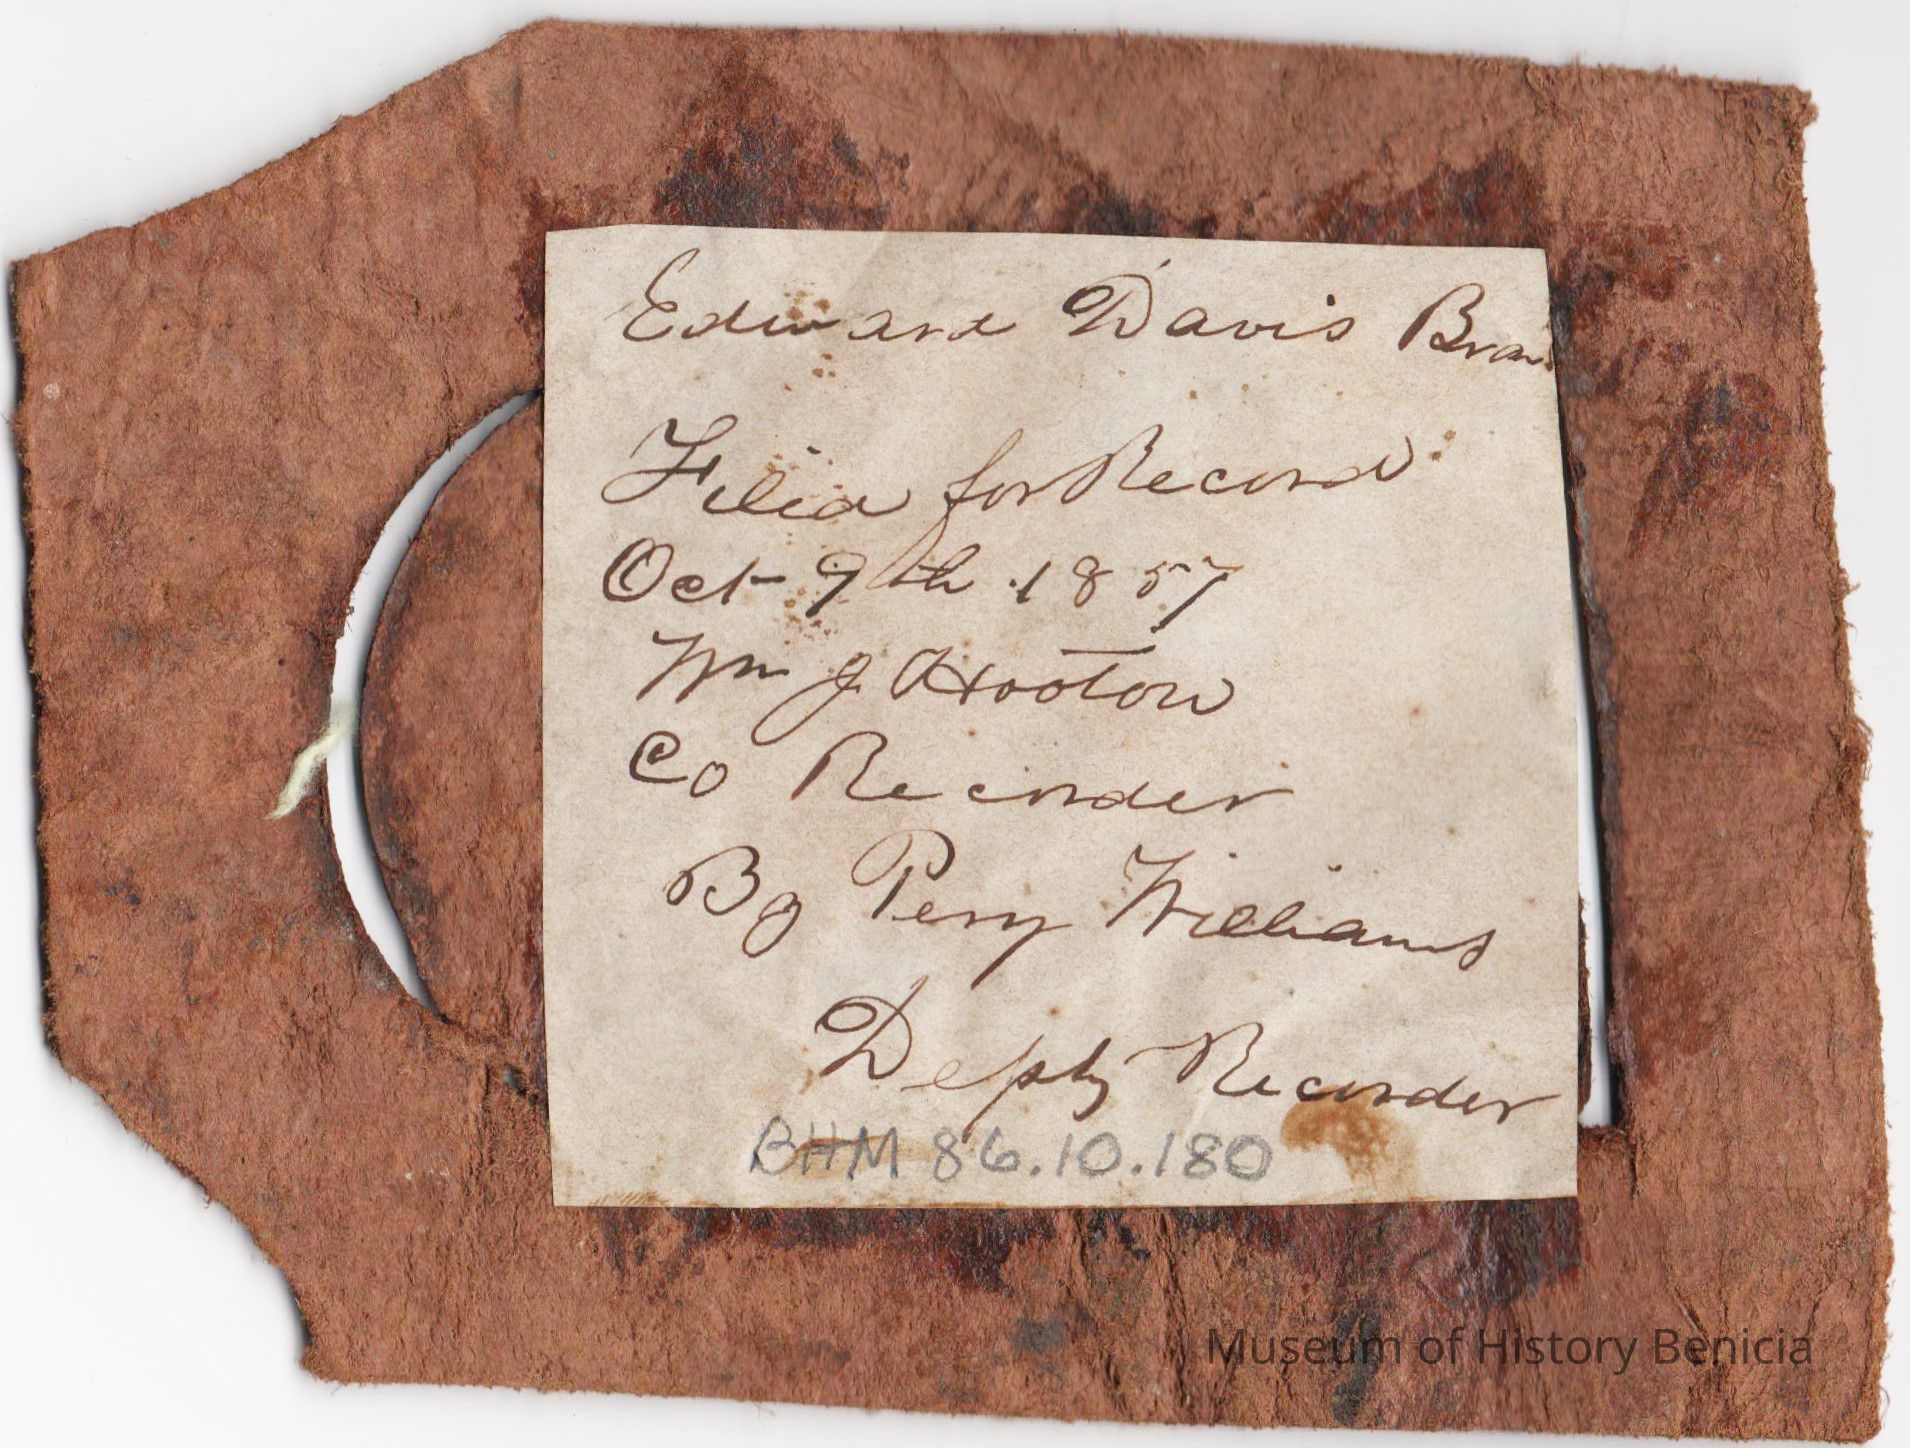 Edward Davis Bran
Filed for Record
Oct 9th 1857
Wm J Hooton
Co Recorder
By Perry Williams
Depty Recorder
BHM 86.10.180
Museum of History Benicia